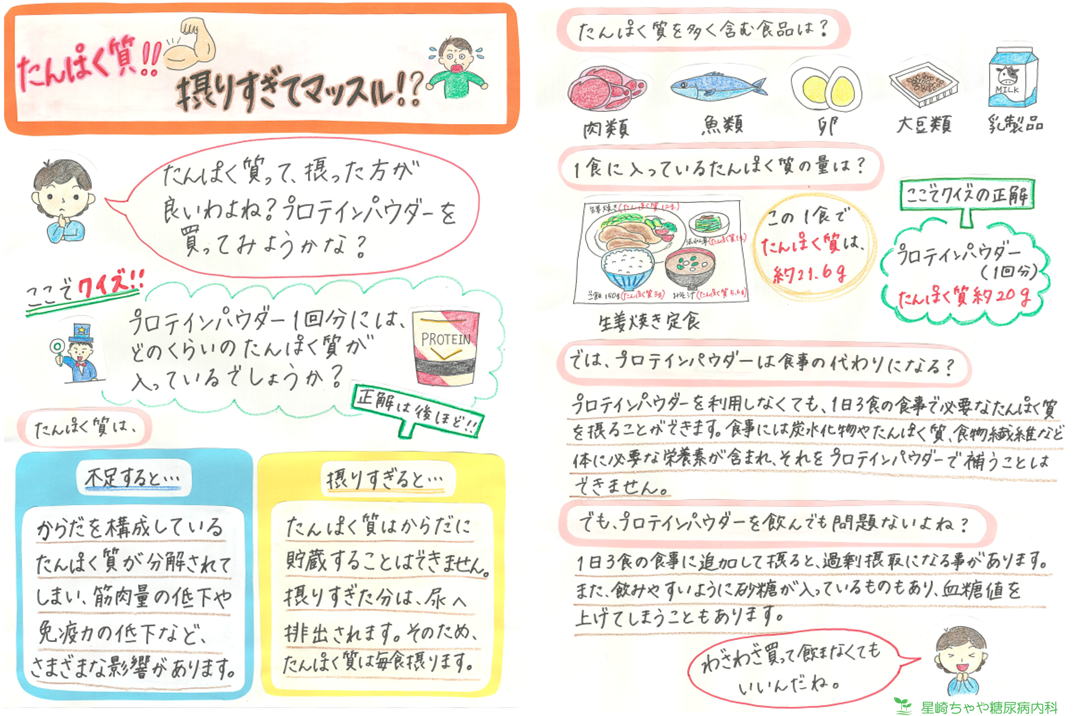 たんぱく質!!
摂りすぎてマッスル!?
たんぱく質って、摂った方が
良いわよね?プロテインパウダーを
買ってみようかな?
ここでクイズ!!
プロテインパウダー1回分には、
どのくらいのたんぱく質が
入っているでしょうか?
PROTEIN
正解は後ほど!!
たんぱく質は、
不足すると…
からだを構成している
たんぱく質が分解されて
しまい、筋肉量の低下や
免疫力の低下など、
さまざまな影響があります。
摂りすぎると…
たんぱく質はからだに
貯蔵することはできません。
摂りすぎた分は、尿へ
排出されます。そのため、
たんぱく質は毎食摂ります。
たんぱく質を多く含む食品は?
MILK
肉類
魚類
卵
大豆類
乳製品
1食に入っているたんぱく質の量は?
生姜焼き(たんぱく質
(たんぱく質
ご飯150g(たんぱく質
みそ汁(たんぱく質
生姜焼き定食
この1食で
たんぱく質は、
約21.6g
ここでクイズの正解
プロテインパウダー
(1回分)
たんぱく質約20g
では、プロテインパウダーは食事の代わりになる?
プロテインパウダーを利用しなくても、1日3食の食事で必要なたんぱく質
を摂ることができます。食事には炭水化物やたんぱく質、食物繊維など
体に必要な栄養素が含まれ、それをプロテインパウダーで補うことは
できません。
でも、プロテインパウダーを飲んでも問題ないよね?
1日3食の食事に追加して摂ると、過剰摂取になる事があります。
また、飲みやすいように砂糖が入っているものもあり、血糖値を
上げてしまうこともあります。
わざわざ買って飲まなくても
いいんだね。
星崎ちゃや糖尿病内科